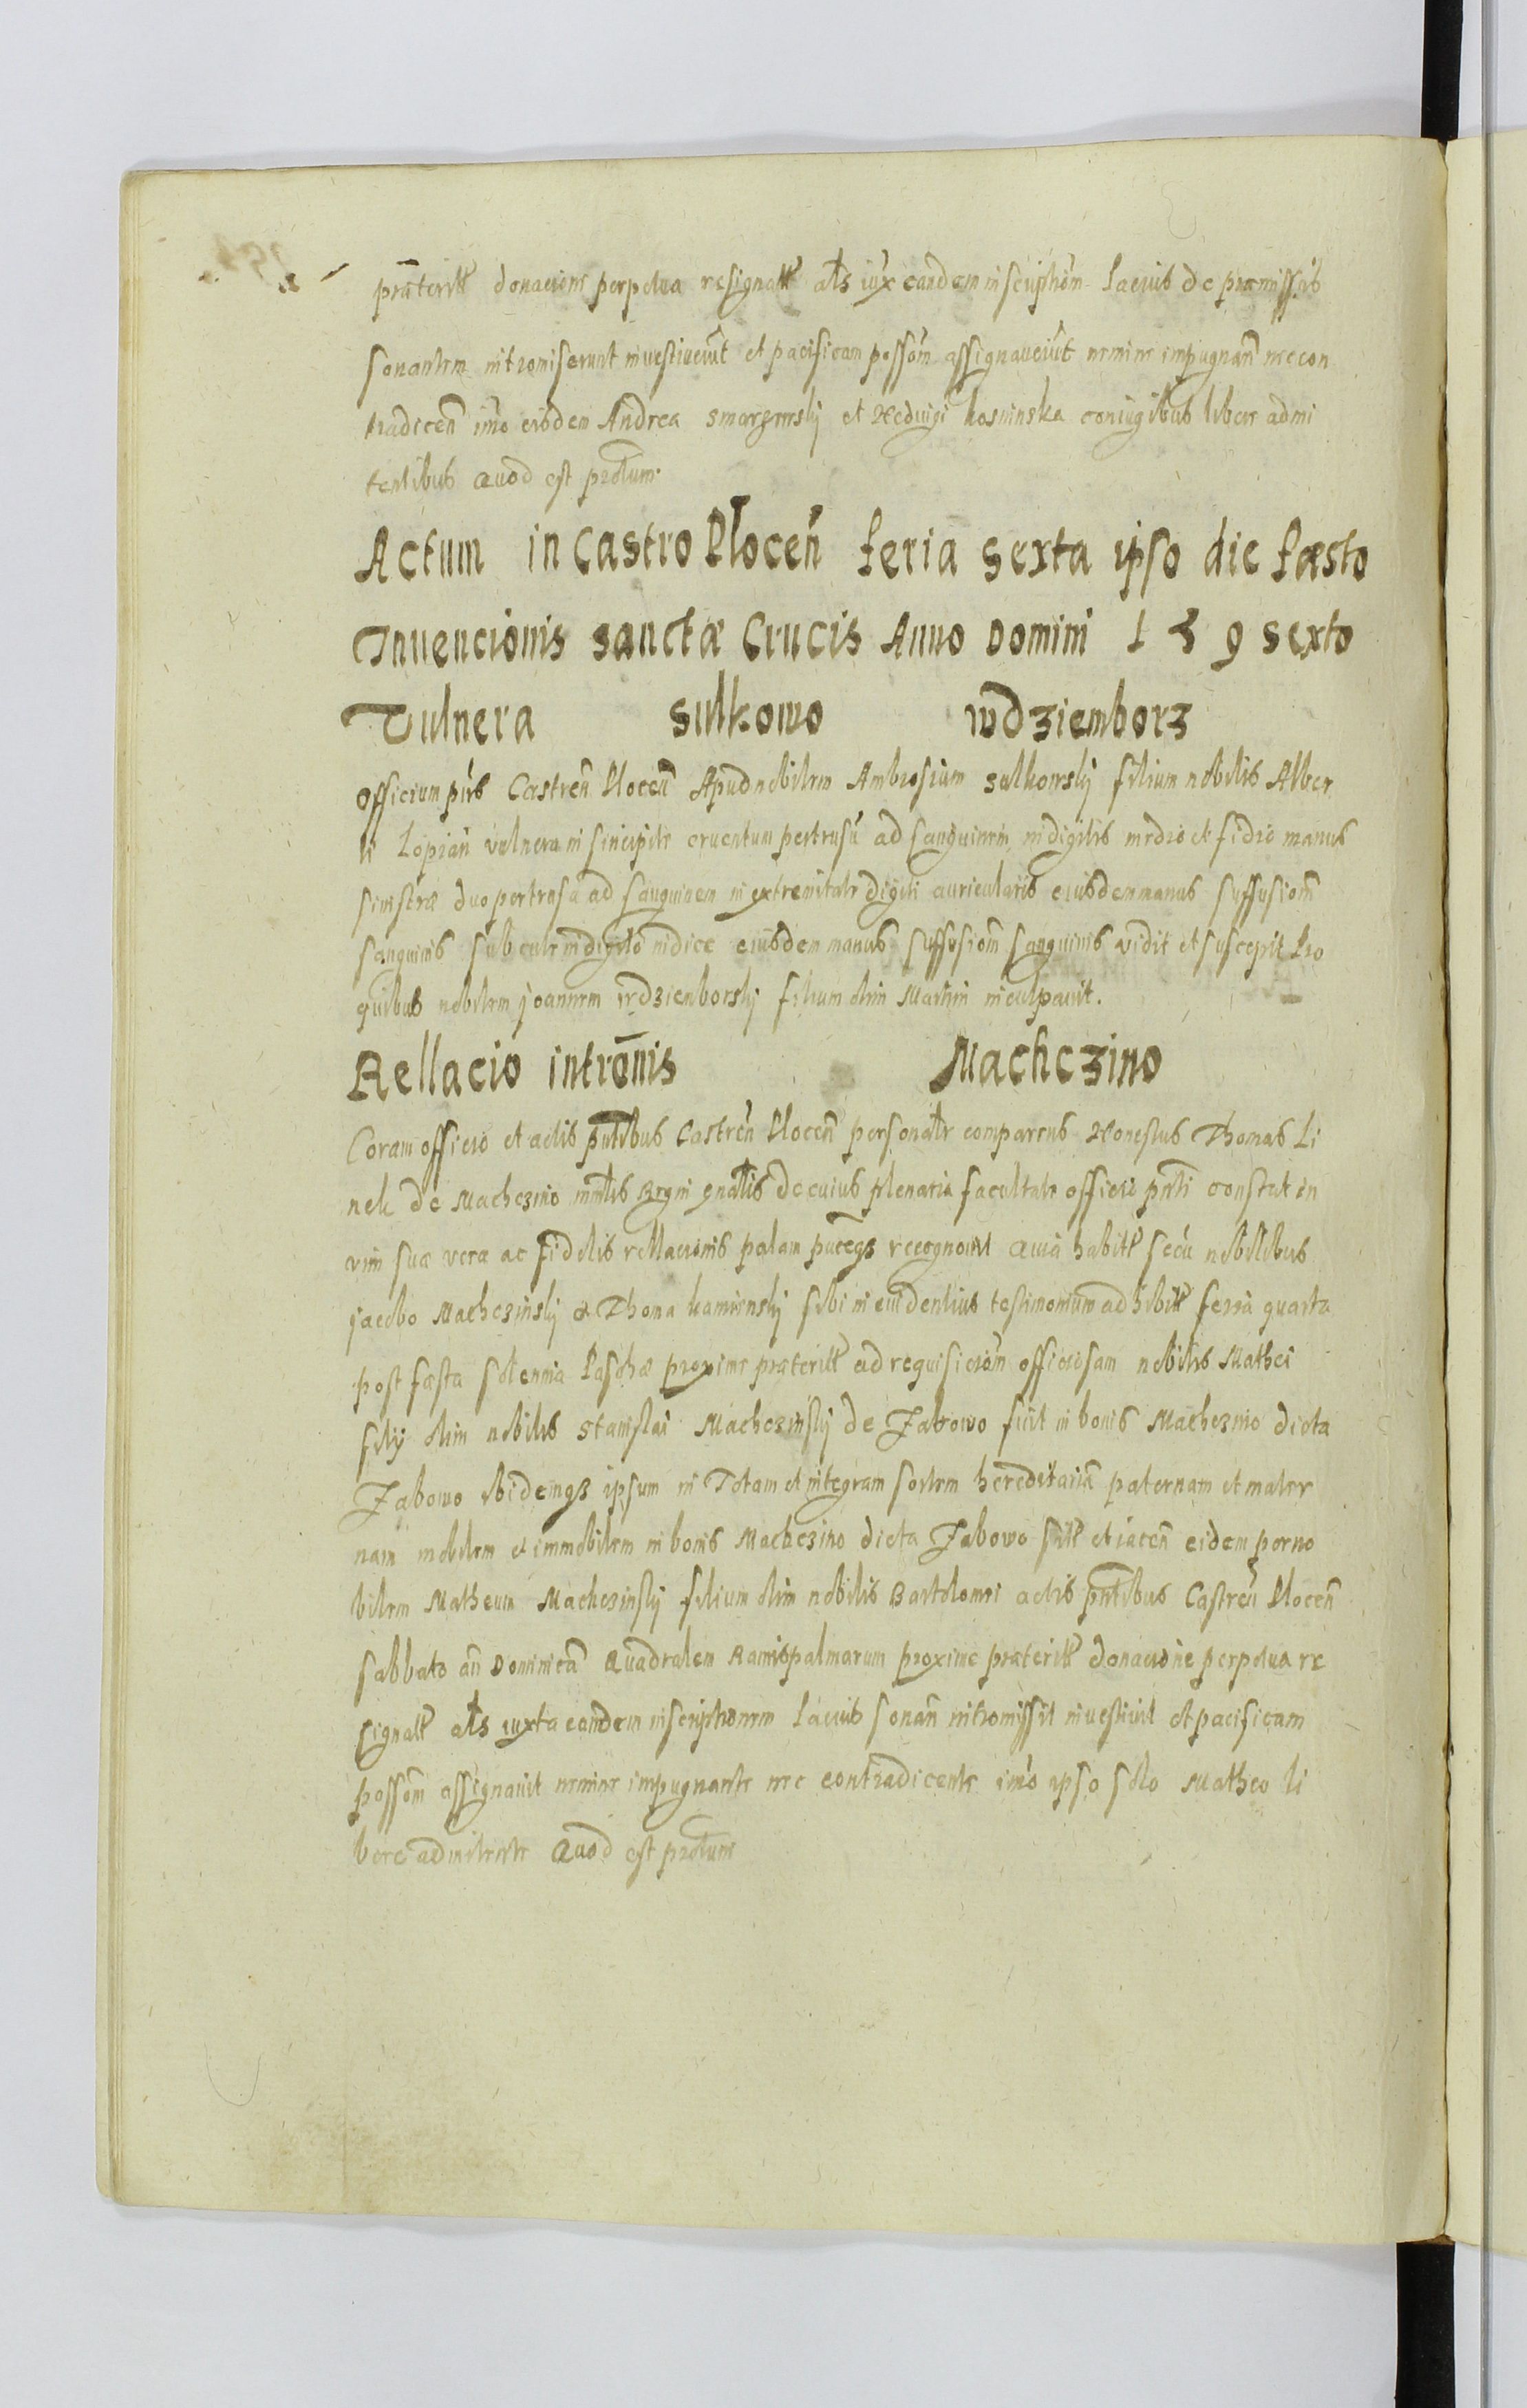 præterit donacione perpetua resignat als iux eandem inscriptiom lacius de præmissis
sonantem intromiserunt investiverūt et pacificam possom assignaverūt nemine impugnan nec con
tradicen imo eisdem Andrea smorzewskj et Hedvigi kosminska coniugibus libere admi
tentibus Quod est protum.
Actum in Castro Plocen feria sexta ipso die fæsto
Invencionis sanctæ Crucis Anno Domini 1 5 9 sexto
Vulnera sulkowo wdziemborz
Officium pns Castren Plocen Apud nobilem Ambrosium sulkowskj filium nobilis Alber
ti vulnera in sincipite cruentum pertrusū ad sanguinem, in digitis medio et manus
sinistræ duo pertrusa ad sanguinem in extremitate digiti auricularis eiusdem manus suffusiom
sanguinis sub cute in digito indice eiusdem manus suffusiom sanguinis vidit et suscepit Pro
quibus nobilem joannem wdziemborskj filium olim Martini inculpavit.
Rellacio intronis Machczino
Coram officio et actis pntibus Castren Plocen personalr comparens Honestus Thomas Li
nek de Machczino mnlis Regni gnalis de cuius plenaria facultate officio pnti constat in
vim suæ veræ ac fidelis rellacionis palam recognovit Quia habit secū nobilibus
jacobo Machczinskj et Thoma kamienskj sibi in evidentius testimonium adhibit feria quarta
post fæsta solennia Paschæ proxime præterit ad requisiciom officiosam nobilis Mathei
filij olim nobilis Stanislai Machczinskj de Jabowo fuit in bonis Machczino dicta
Jabowo ibidemqz ipsum in Totam et integram sortem hereditariā paternam et mater
nam mobilem et immobilem in bonis Machczino dicta Jabowo sit et iacen eidem per no
bilem Matheum Machczinskj filium olim nobilis Bartolomei actis pntibus Castren Plocen
sabbato an Dominicā Quadralem Ramispalmarum proxime præterit donacione perpetua re
signat als iuxta eandem inscriptionem lacius sonan intromissit investivit et pacificam
possom assignavit nemine impugnante nec contradicente imo ipso solo Matheo li
bere admitente Quod est protum